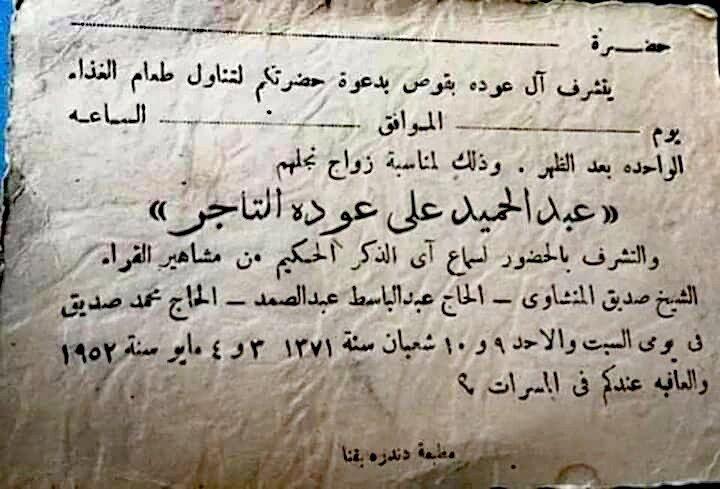 حضـــرة
يتشرف آل عوده بقوص بدعوة حضرتكم لتناول طعام الغذاء
يوم الموافق الساعه
الواحده بعد الظهر . وذلك لمناسبة زواج نجلهم
«عبدالحميد على عوده التاجر»
والتشرف بالحضور لسماع آى الذكر الحكيم من مشاهير القراء
الشيخ صديق المنشاوى – الحاج عبدالباسط عبدالصمد – الحاج محمد صديق
فى يومى السبت والاحد ٩ و ١٠ شعبان سنة ١٣٧١ ٣ و ٤ مايو سنة ١٩٥٢
والعافيه عندكم فى المسرات
مطبعة دندره بقنا